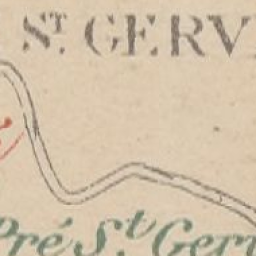 ST. GERV
Pré St. Gerv